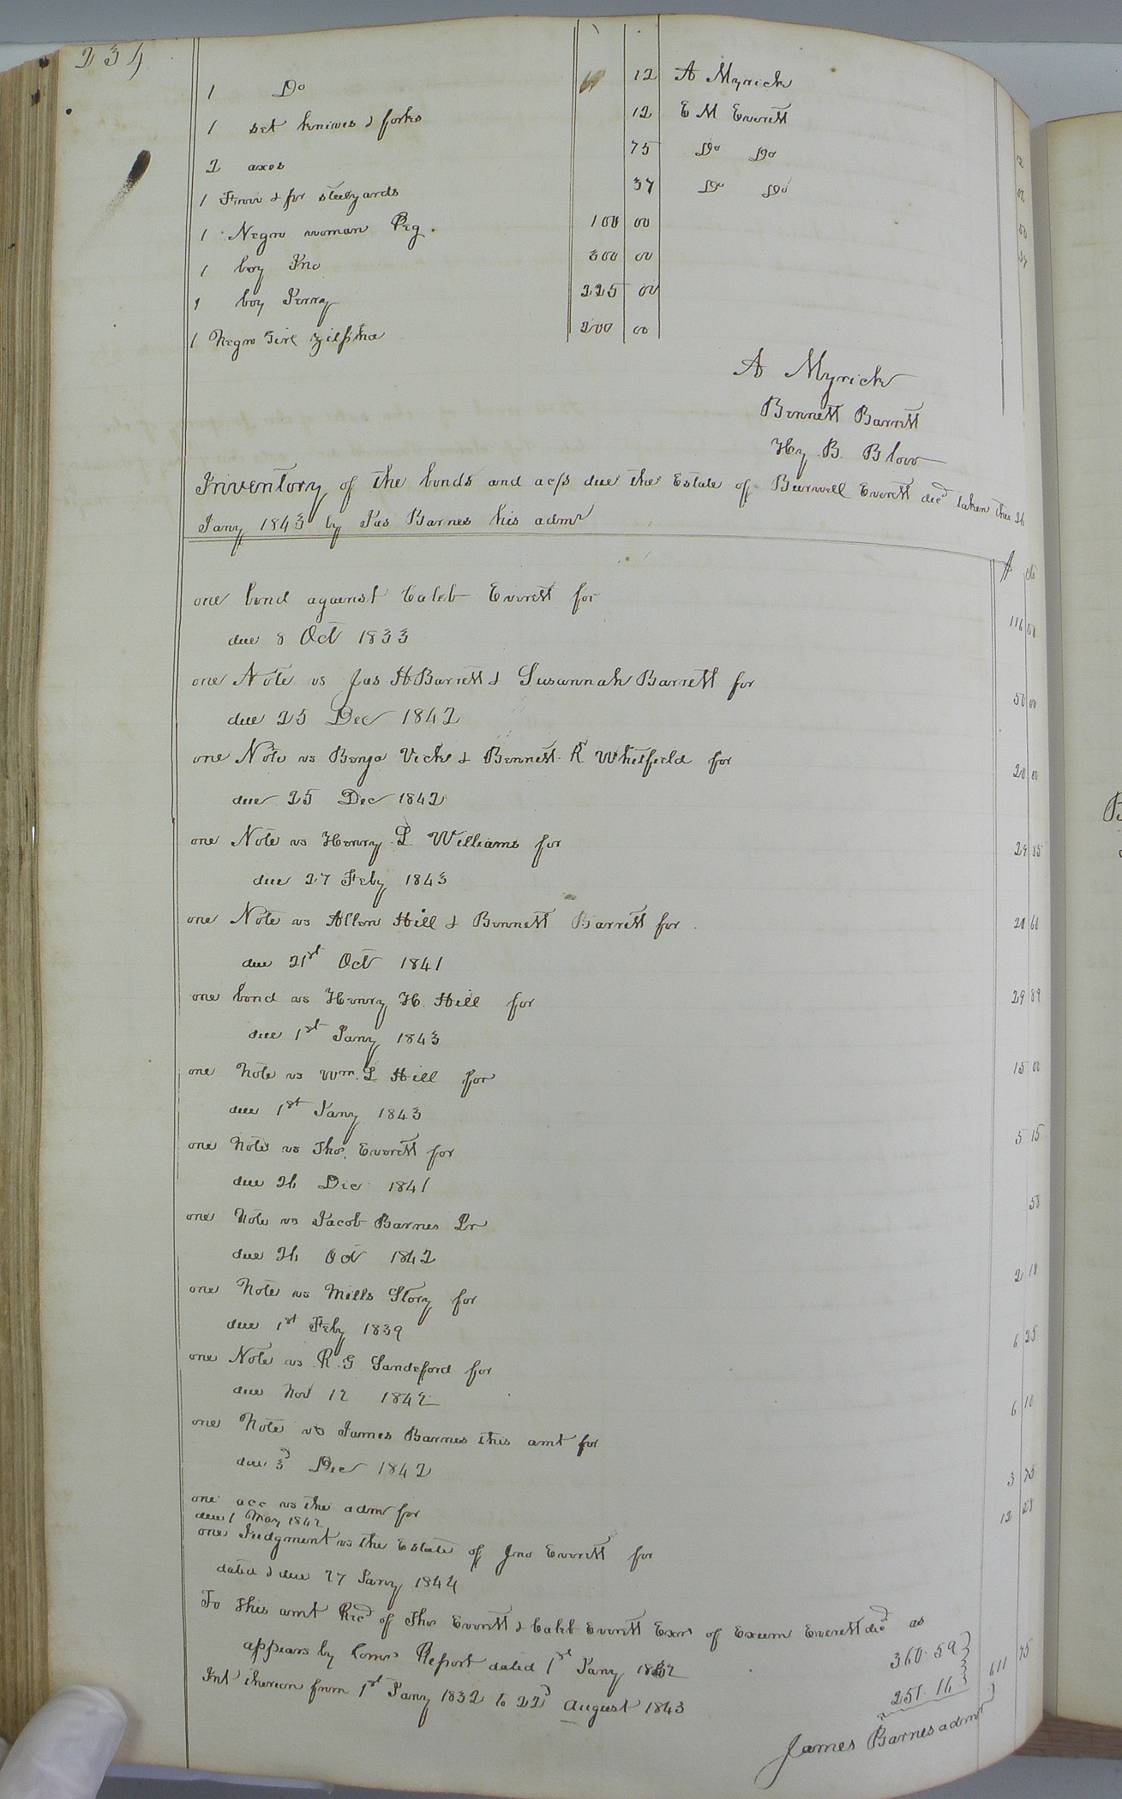 234
1 Do 12 A Myrick
1 set knives & forks 12 E M Everett
2 axes 75 Do Do
1 & for steelyards 37 Do Do
1 Negro woman Peg. 100 00
1 boy Jno 300 00
1 boy Perry 225 00
1 Negro Girl Zilpha 200 00
A Myrick
Bennett Barrett
Hy. B. Blow
Inventory of the bonds and acts due the Estate of Burwell Everett decd taken the 26
Jany 1843 by Jas Barnes his admr
$ cts
one bond against Caleb Everett for
due 8 Oct 1833 116
one Note vs Jas H Barrett & Susannah Barrett for
due 25 Dec 1842 50 00
one Note vs Benja Vick & Bennett R Whitfield for
due 25 Dec 1842 20 00
one Note vs Henry L Williams for
due 27 Feby 1843 24 85
one Note vs Allen Hill & Bennett Barrett for
due 21st Oct 1841 20 60
one bond vs Henry H. Hill for
due 1st Jany 1843 29 89
one Note vs Wm. L Hill for
due 1st Jany 1843 15 00
one Note vs Thos. Everett for
due 26 Dec 1841 5 15
one Note vs Jacob Barnes Jr
due 26 Oct 1842 58
one Note vs Mills Story for
due 1st Feby 1839 2 18
one Note vs R. G Sandeford for
due Nov 12 1842 6 25
one Note vs James Barnes this amt for
due 3d Dec 1842 6 10
one acc vs the admr for 3 75
due 1 May 1842
one Judgment vs the Estate of Jno Everett for 12
dated & due 27 Jany 1844
To this amt Recd of Thos Everett & Caleb Everett Exrs of Exum Everett decd as
appears by Comrs Report dated 1st Jany 1832 360.59
Int thereon from 1st Jany 1832 to 22d August 1843 251.16 611 75
James Barnes admr